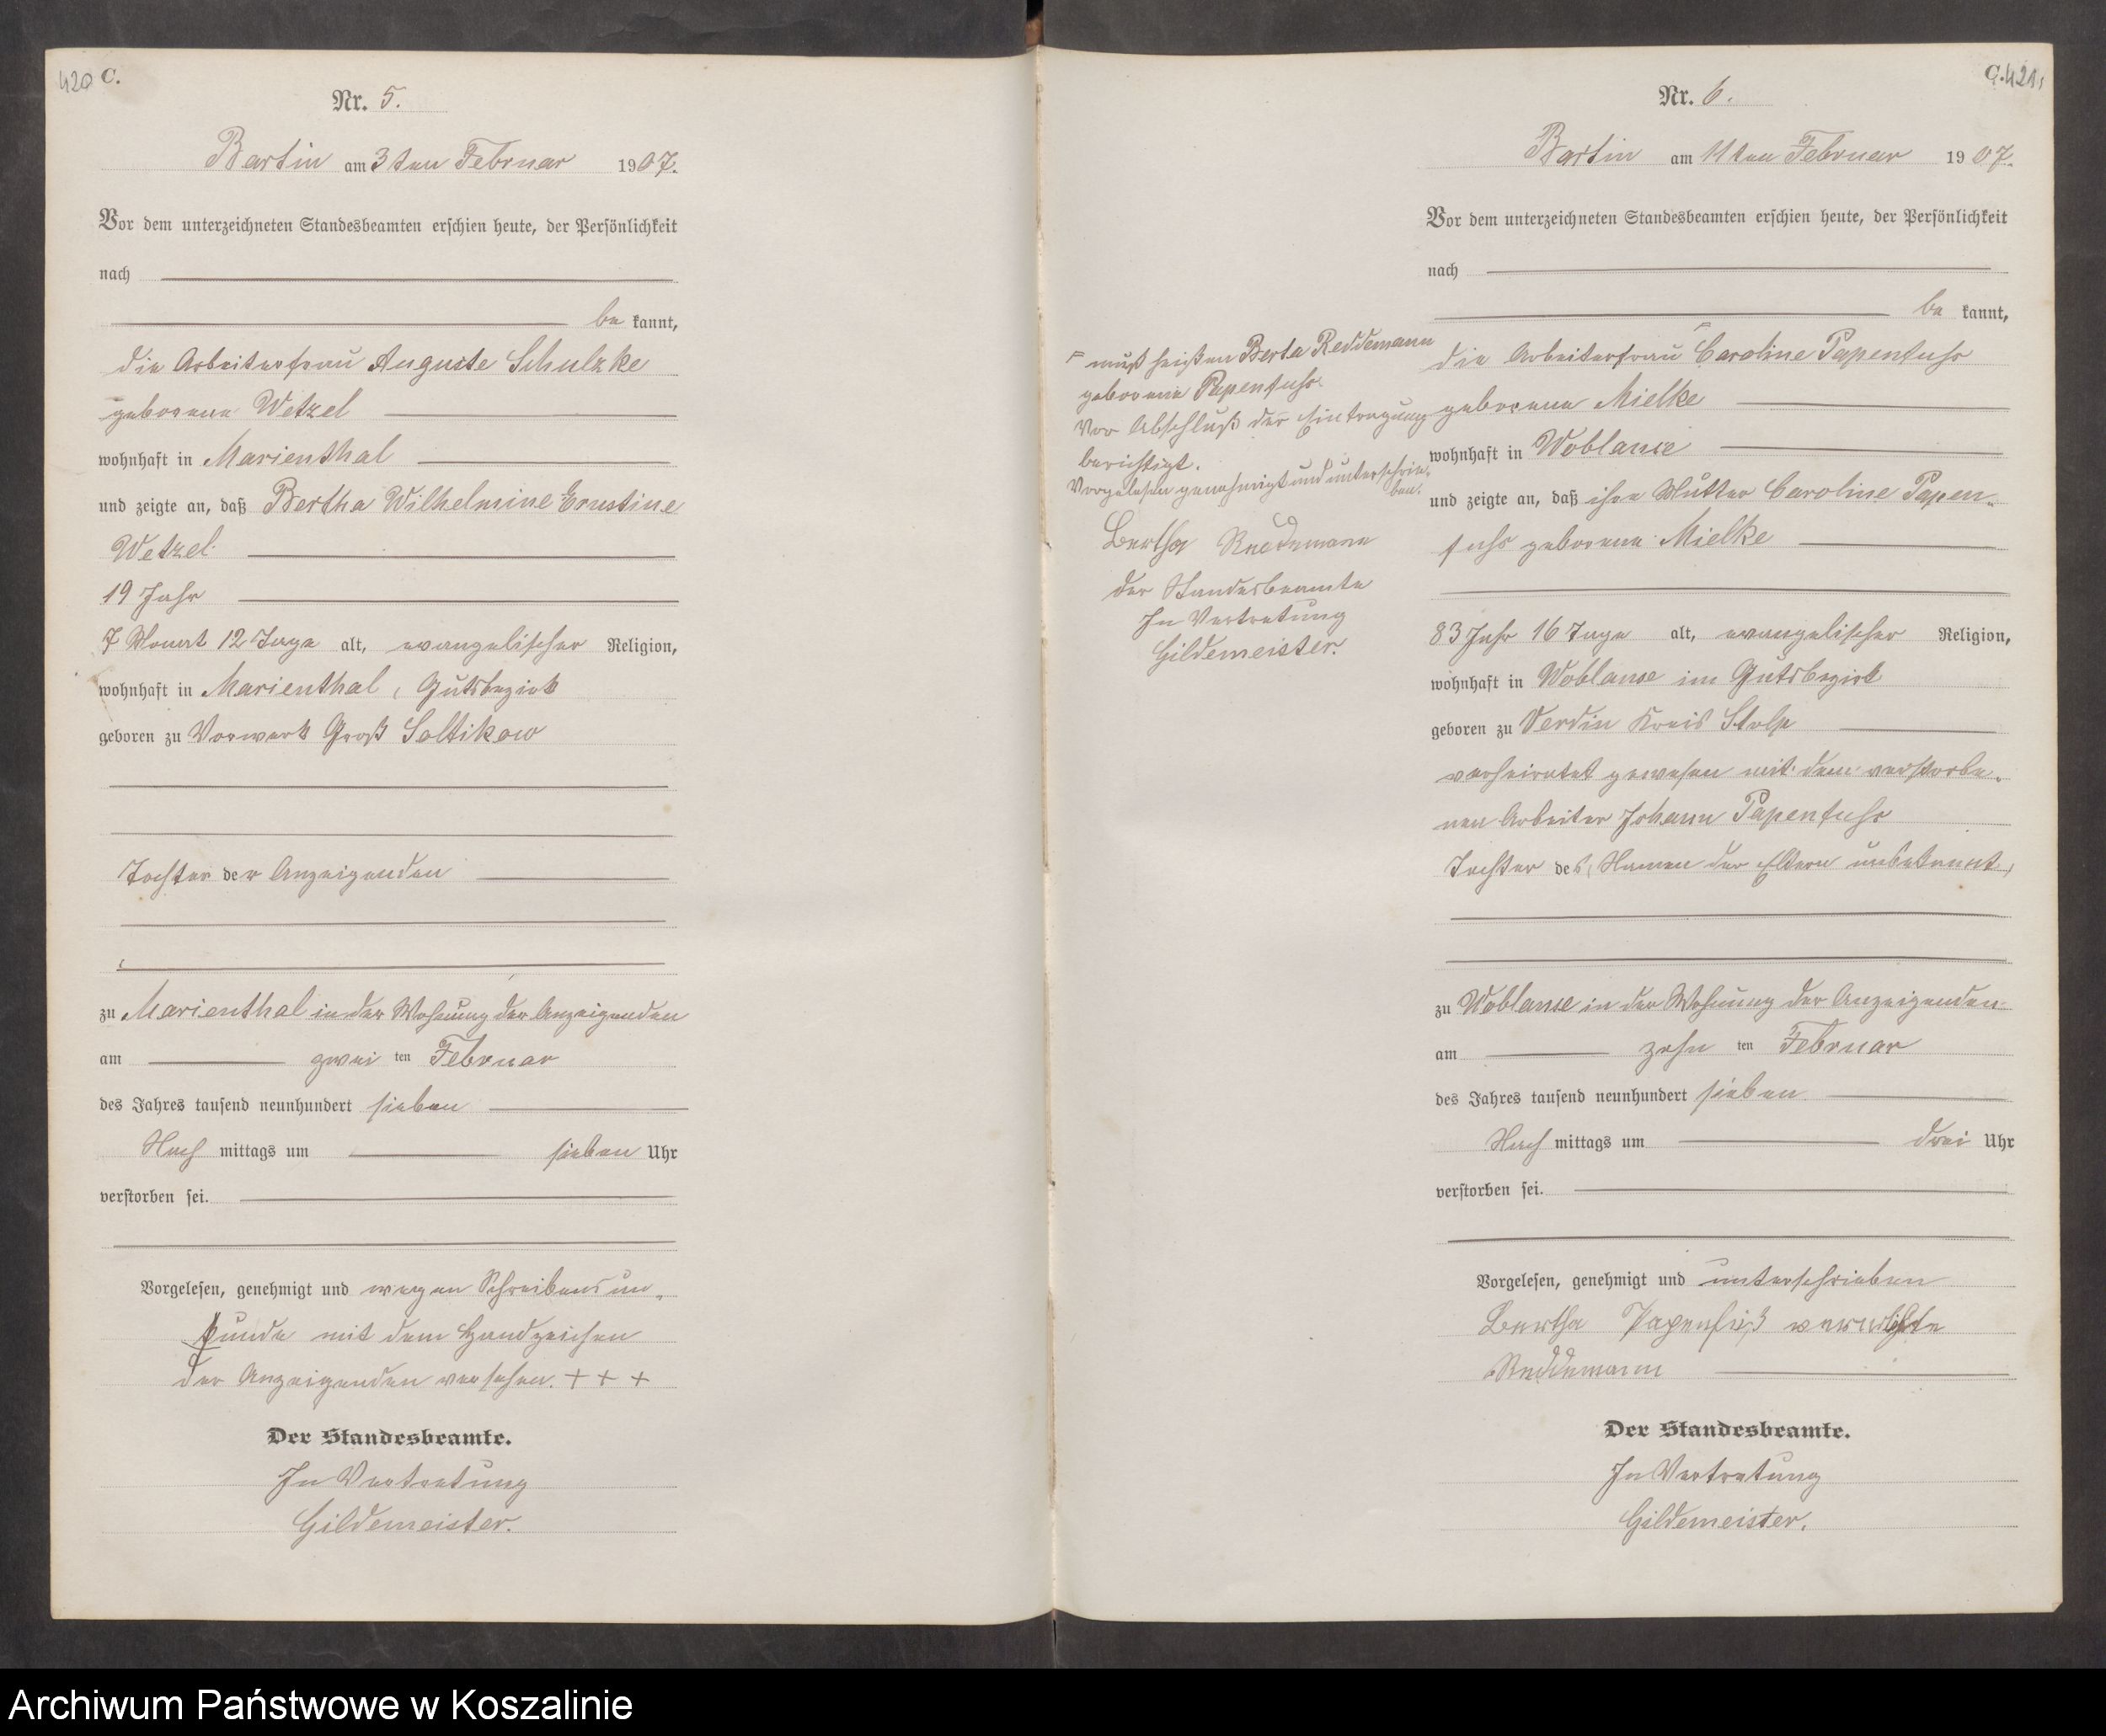 420 C.
Nr. 5.
Bartin am 3ten Februar 1907.
Vor dem unterzeichneten Standesbeamten erschien heute, der Persönlichkeit
nach
be kannt,
die Arbeiterfrau Auguste Schulzke
geborene Wetzel
wohnhaft in Marienthal
und zeigte an, daß Bertha Wilhelmine Ernstine
Wetzel
19 Jahr
7 Monat 12 Tage alt, evangelischer Religion,
wohnhaft in Marienthal, Gutsbezirk
geboren zu Vorwerk Groß Soltikow
Tochter der Anzeigenden
zu Marienthal in der Wohnung der Anzeigenden
am zwei ten Februar
des Jahres tausend neunhundert sieben
Nach mittags um sieben Uhr
verstorben sei.
Vorgelesen, genehmigt und wegen Schreibensun-
kunde mit dem Handzeichen
der Anzeigenden versehen. + + +
Der Standesbeamte.
In Vertretung
Gildemeister.
C. 421
Nr. 6.
Bartin am 11ten Februar 1907.
Vor dem unterzeichneten Standesbeamten erschien heute, der Persönlichkeit
nach
be kannt,
die Arbeiterfrau Caroline Papenfuhs
geborene Mielke
wohnhaft in Woblanse
und zeigte an, daß ihre Mutter Caroline Papen-
fuhs geborene Mielke
83 Jahr 16 Tage alt, evangelischer Religion,
wohnhaft in Woblanse im Gutsbezirk
geboren zu Versin Kreis Stolp
verheiratet gewesen mit dem verstorbe-
nen Arbeiter Johann Papenfuhs
Tochter des, Namen der Eltern unbekannt,
zu Woblanse in der Wohnung der Anzeigenden
am zehn ten Februar
des Jahres tausend neunhundert sieben
Nach mittags um drei Uhr
verstorben sei.
Vorgelesen, genehmigt und unterschrieben
Bertha Papenfuß verehlichte
Reddemann
Der Standesbeamte.
In Vertretung
Gildemeister.
muß heißen Berta Reddemann
geborene Papenfuhs.
Vor Abschluß der Eintragung
berichtigt.
Vorgelesen genehmigt und unterschrie-
ben.
Bertha Reddemann
der Standesbeamte
In Vertretung
Gildemeister.
Archiwum Państwowe w Koszalinie